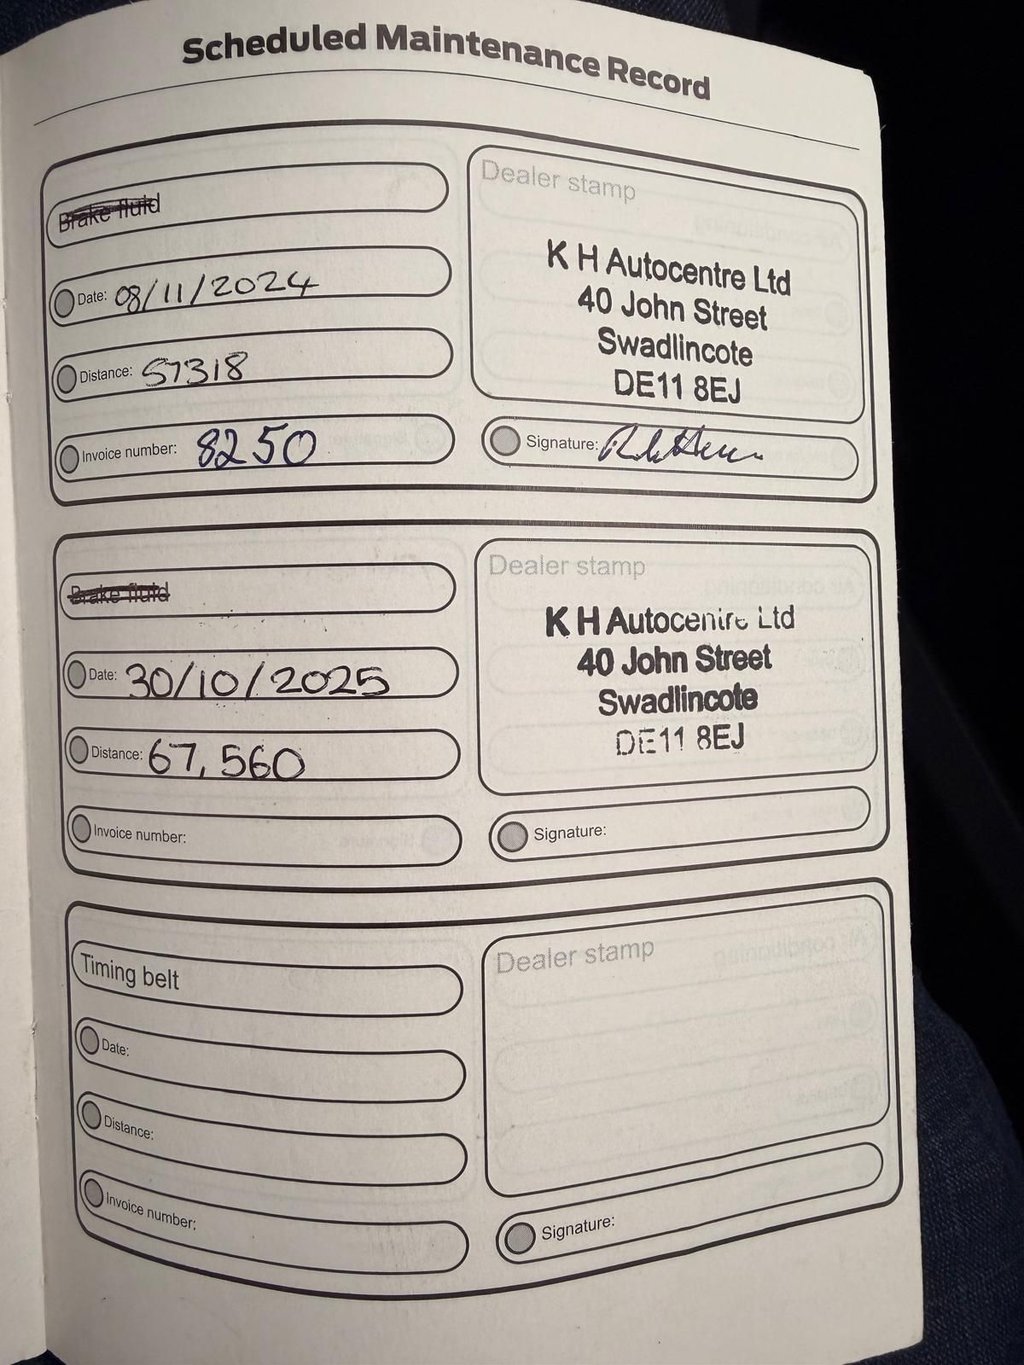 Scheduled Maintenance Record
Brake fluid
Date: 08/11/2024
Distance: 57318
Invoice number: 8250
Dealer stamp
K H Autocentre Ltd
40 John Street
Swadlincote
DE11 8EJ
Signature:
Brake fluid
Date: 30/10/2025
Distance: 67,560
Invoice number:
Dealer stamp
K H Autocentre Ltd
40 John Street
Swadlincote
DE11 8EJ
Signature:
Timing belt
Date:
Distance:
Invoice number:
Dealer stamp
Signature: